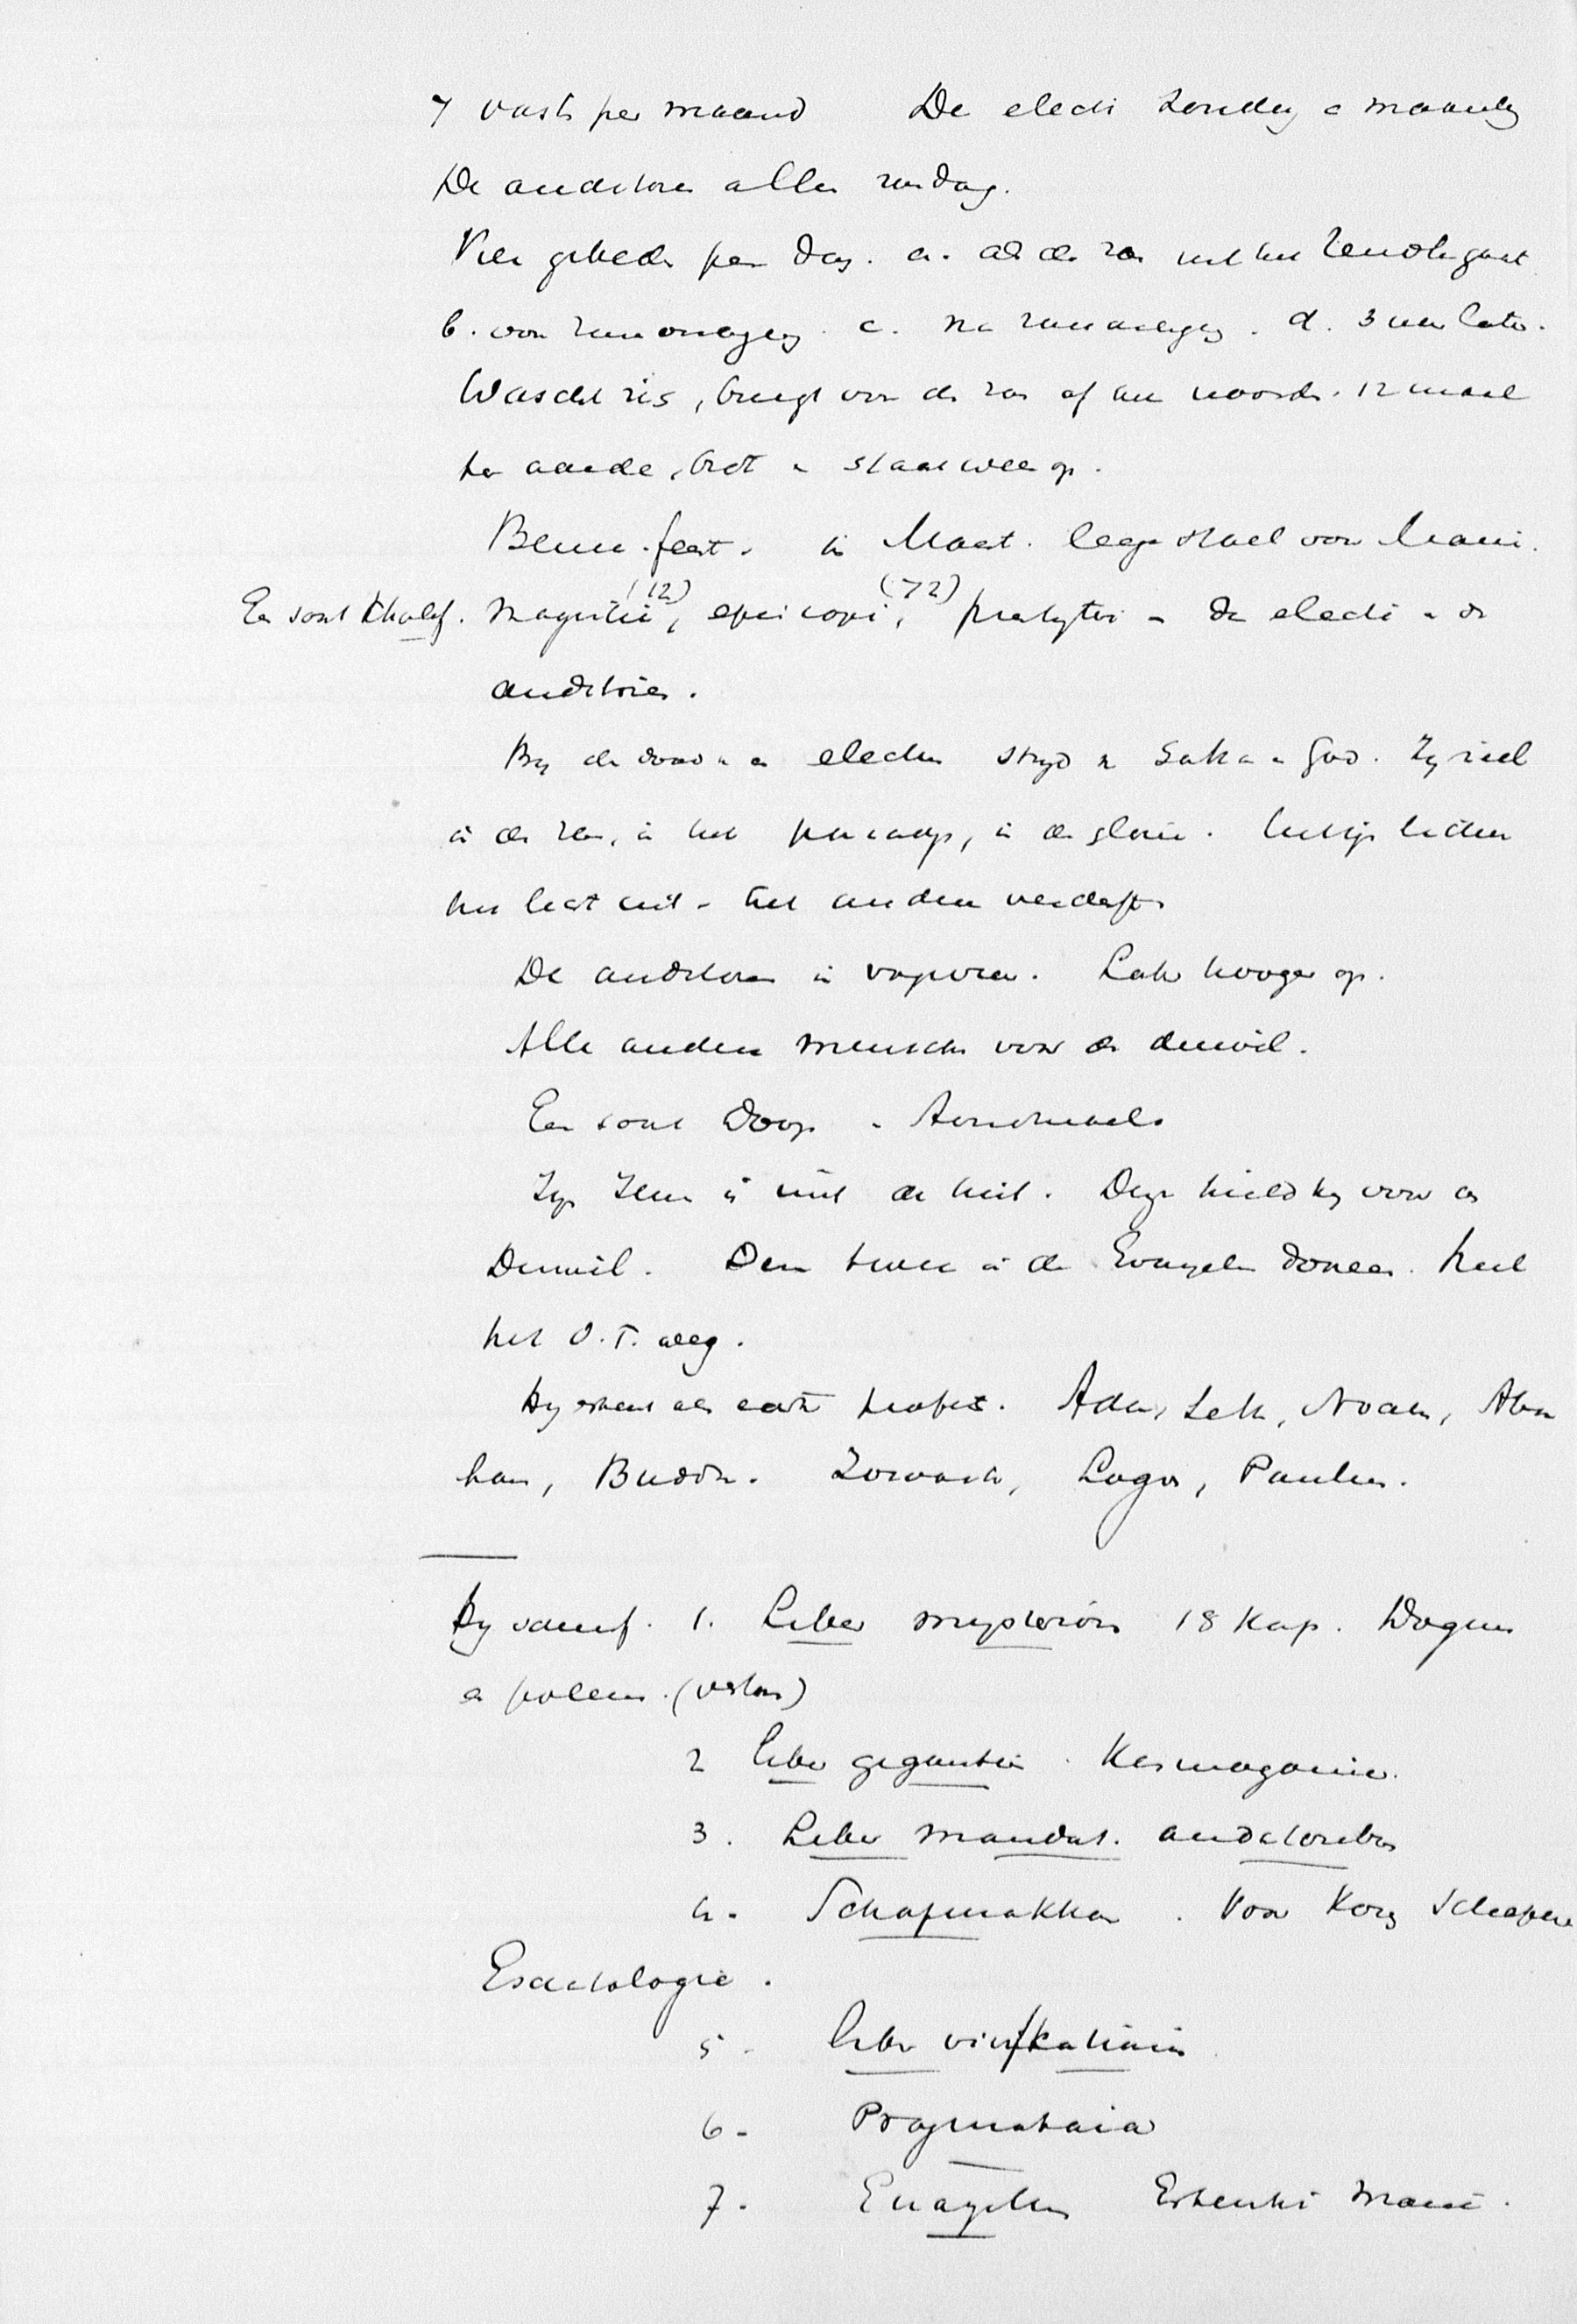 7 vast per maand De electi zondag e maandag
De auditores alleen zondag.
Vier gebeden per dag. a. als de zon uit het zenith gaat
b. voor zonsondergang. c. na zonsonderg. d. 3 uur later.
Wascht zich, buigt voor de zon of het noorden. 12 maal
ter aarde, bidt en staat weer op.
Bema-feest. in Maart. lege stoel voor Mani.
Een soort Khalif. Magistri (12), episcopi (72), presbyteri - de electi en de
auditores.
By de dood v. e. electus stryd v. Satan en God. Zy ziel
in de zon, in het paradys, in de glorie.
het licht uit - het andere verderft
De auditores in vagevuur. Later hooger op.
Alle andere menschen voor de duivel.
Een soort Doop en Avondmaal.
Zyn Jezus is niet de hist. Deze hield hy voor de
Duivel. Den twee in de Evangelien dooreen. Heel
het O.T. weg.
Hy erkent als echte profet. Adam, Seth, Noach, Abra
ham, Buddha. Zoroaster, Logos, Paulus.
Hy schreef. 1. Liber mysteriorum 18 Kap. Dogmen
en polem. (verloren)
2 Liber gigantium. Kosmogonie.
3. Liber mandat. auditoribus
4. Schapurakhan. Voor Kong Schapur
Eschatologie.
5. Liber vivificationis
6. Pragmateia
7. Evangelium Ertenki Mani.